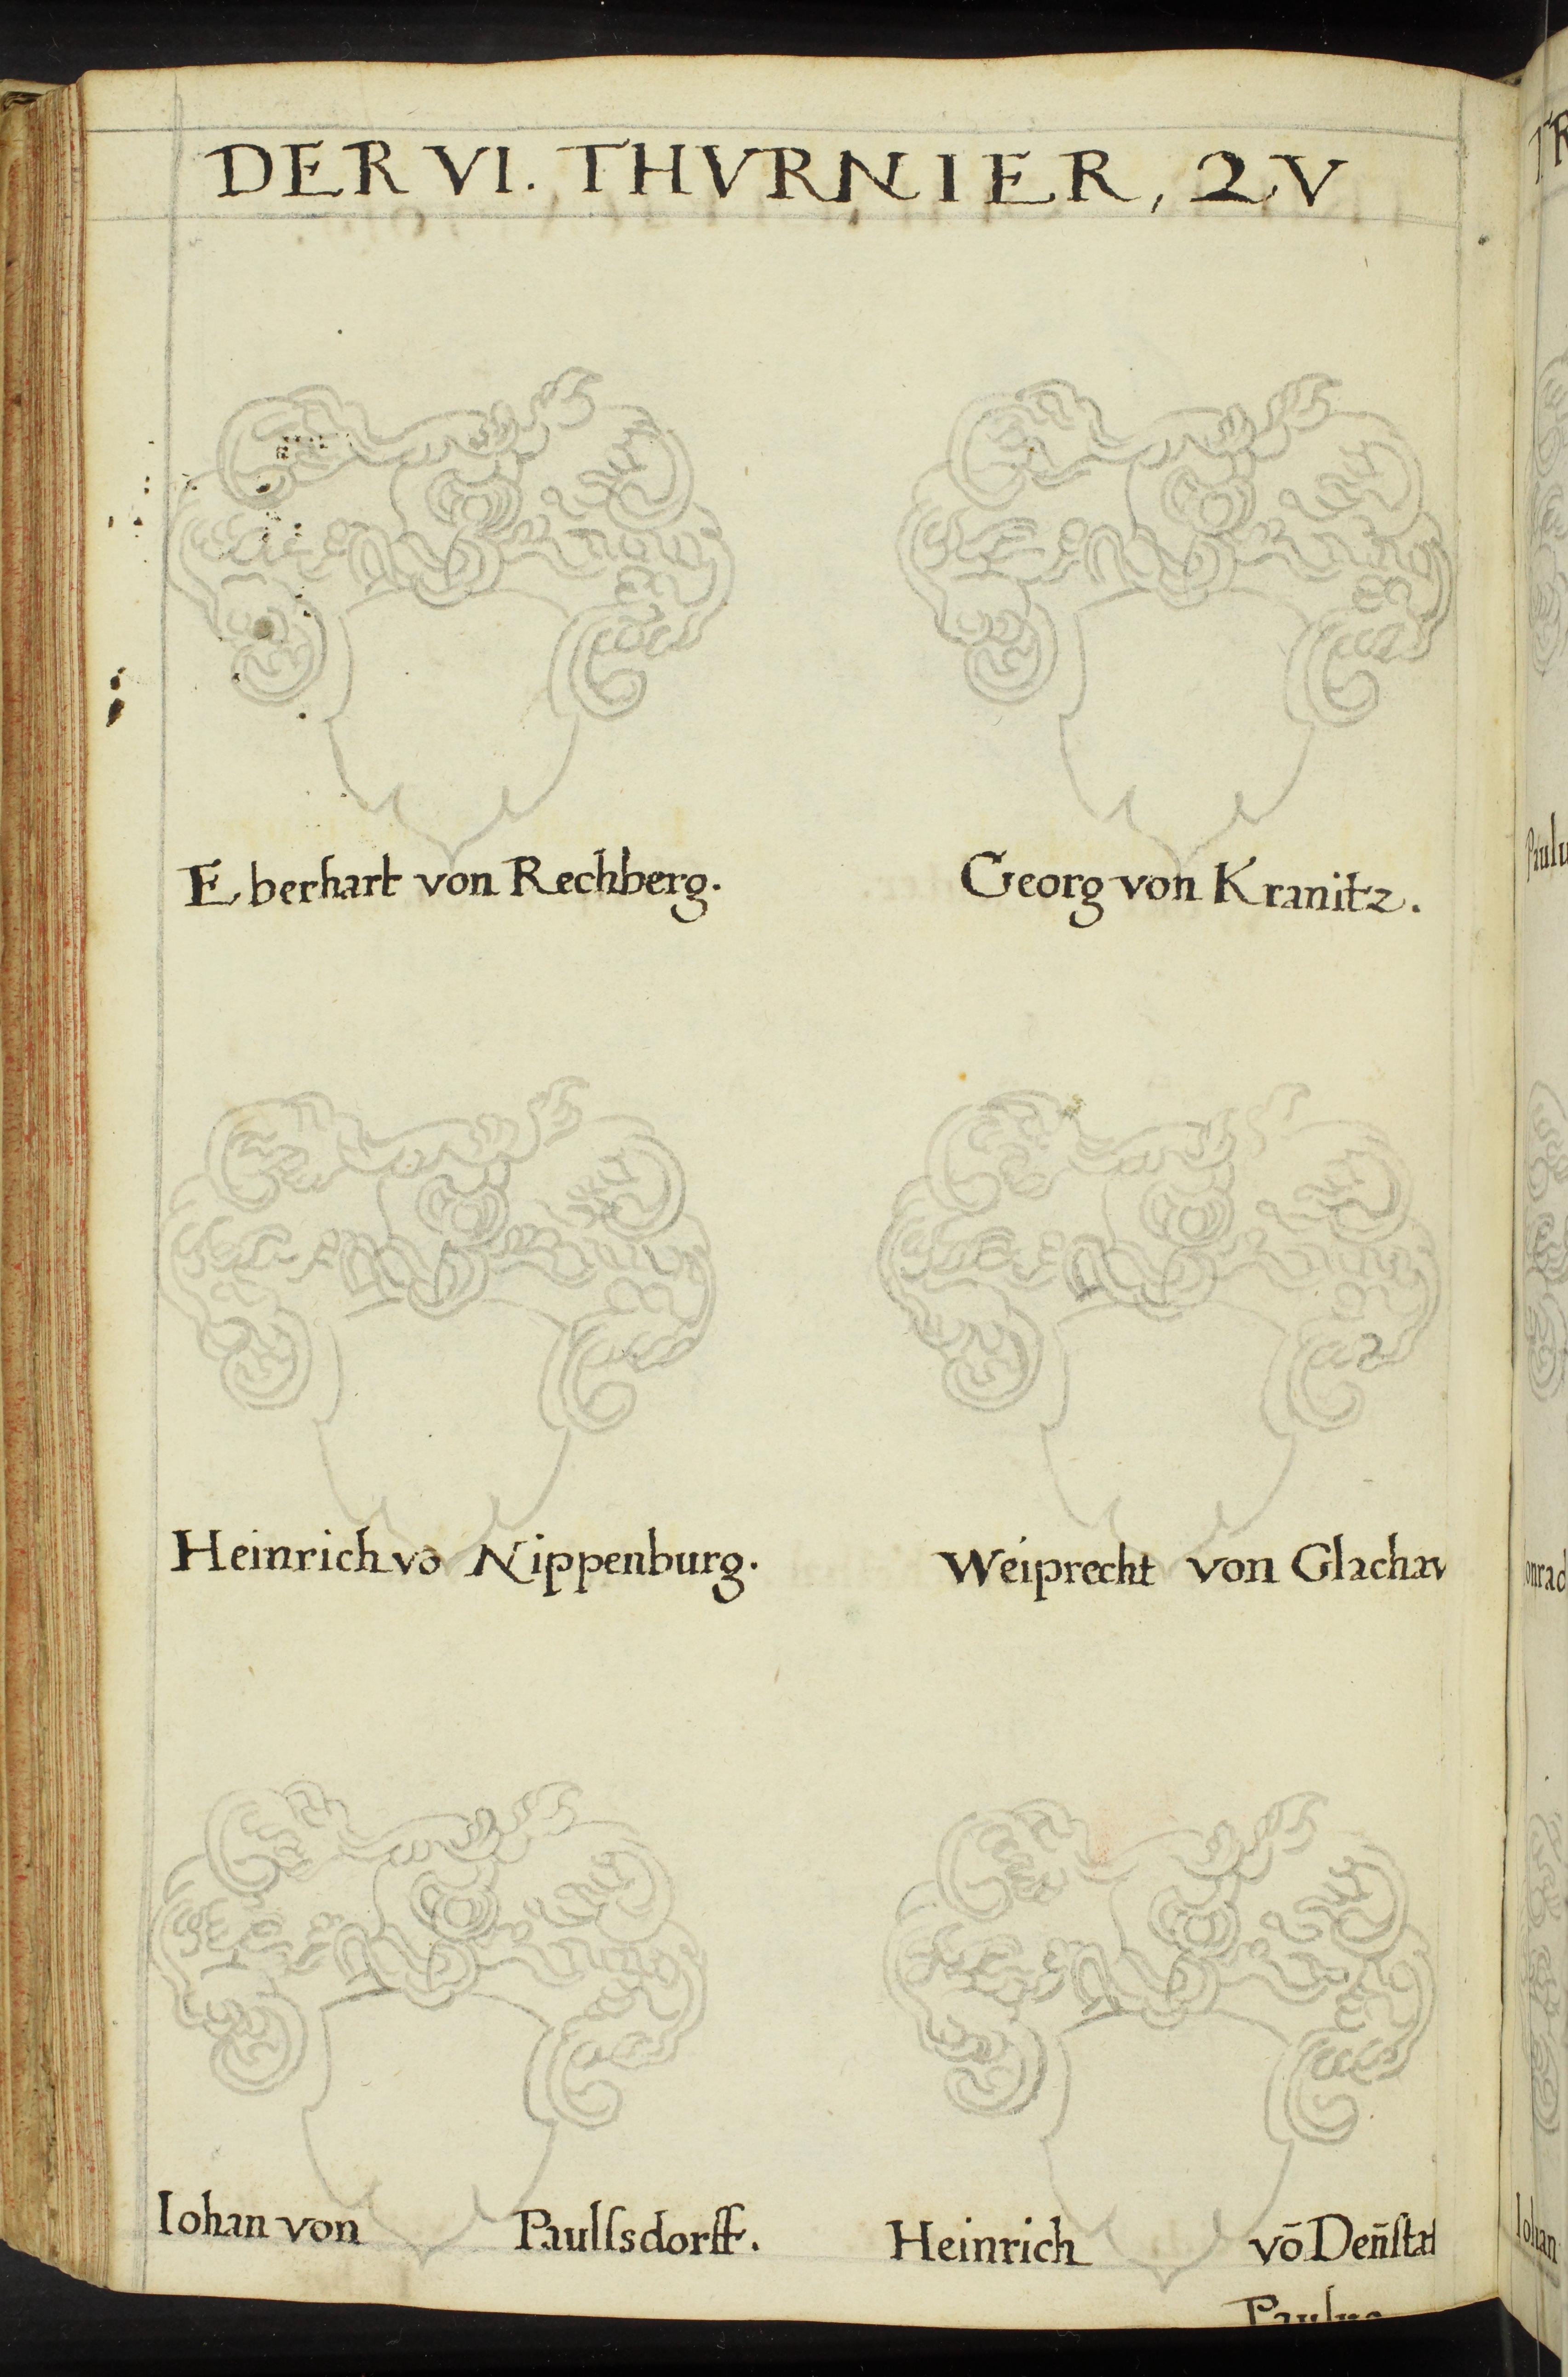 DER VI. THVRNIER, ZV
Eberhart von Rechberg.
Georg von Kranitz.
Heinrich vō Nippenburg.
Weiprecht von Glachav
Iohan von Paulſsdorff.
Heinrich vō Den̄ſtat
Paulus